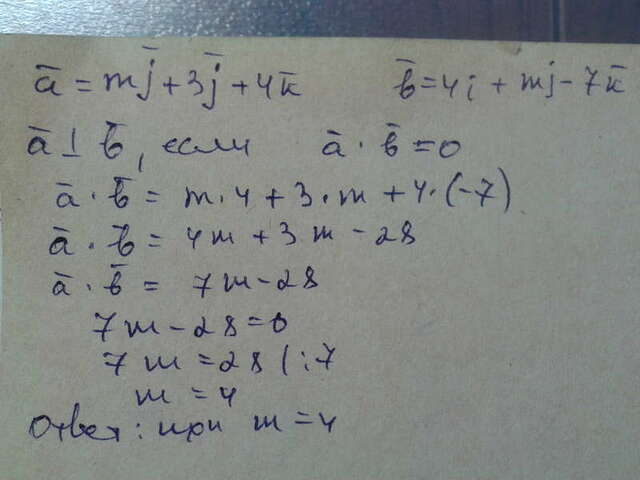 a̅ = mj̅ + 3j̅ + 4k̅ b̅ = 4i + mj - 7k̅
a̅ ⊥ b̅, если a̅ · b̅ = 0
a̅ · b̅ = m · 4 + 3 · m + 4 · (-7)
a̅ · b̅ = 4m + 3m - 28
a̅ · b̅ = 7m - 28
7m - 28 = 0
7m = 28 | :7
m = 4
Ответ: при m = 4